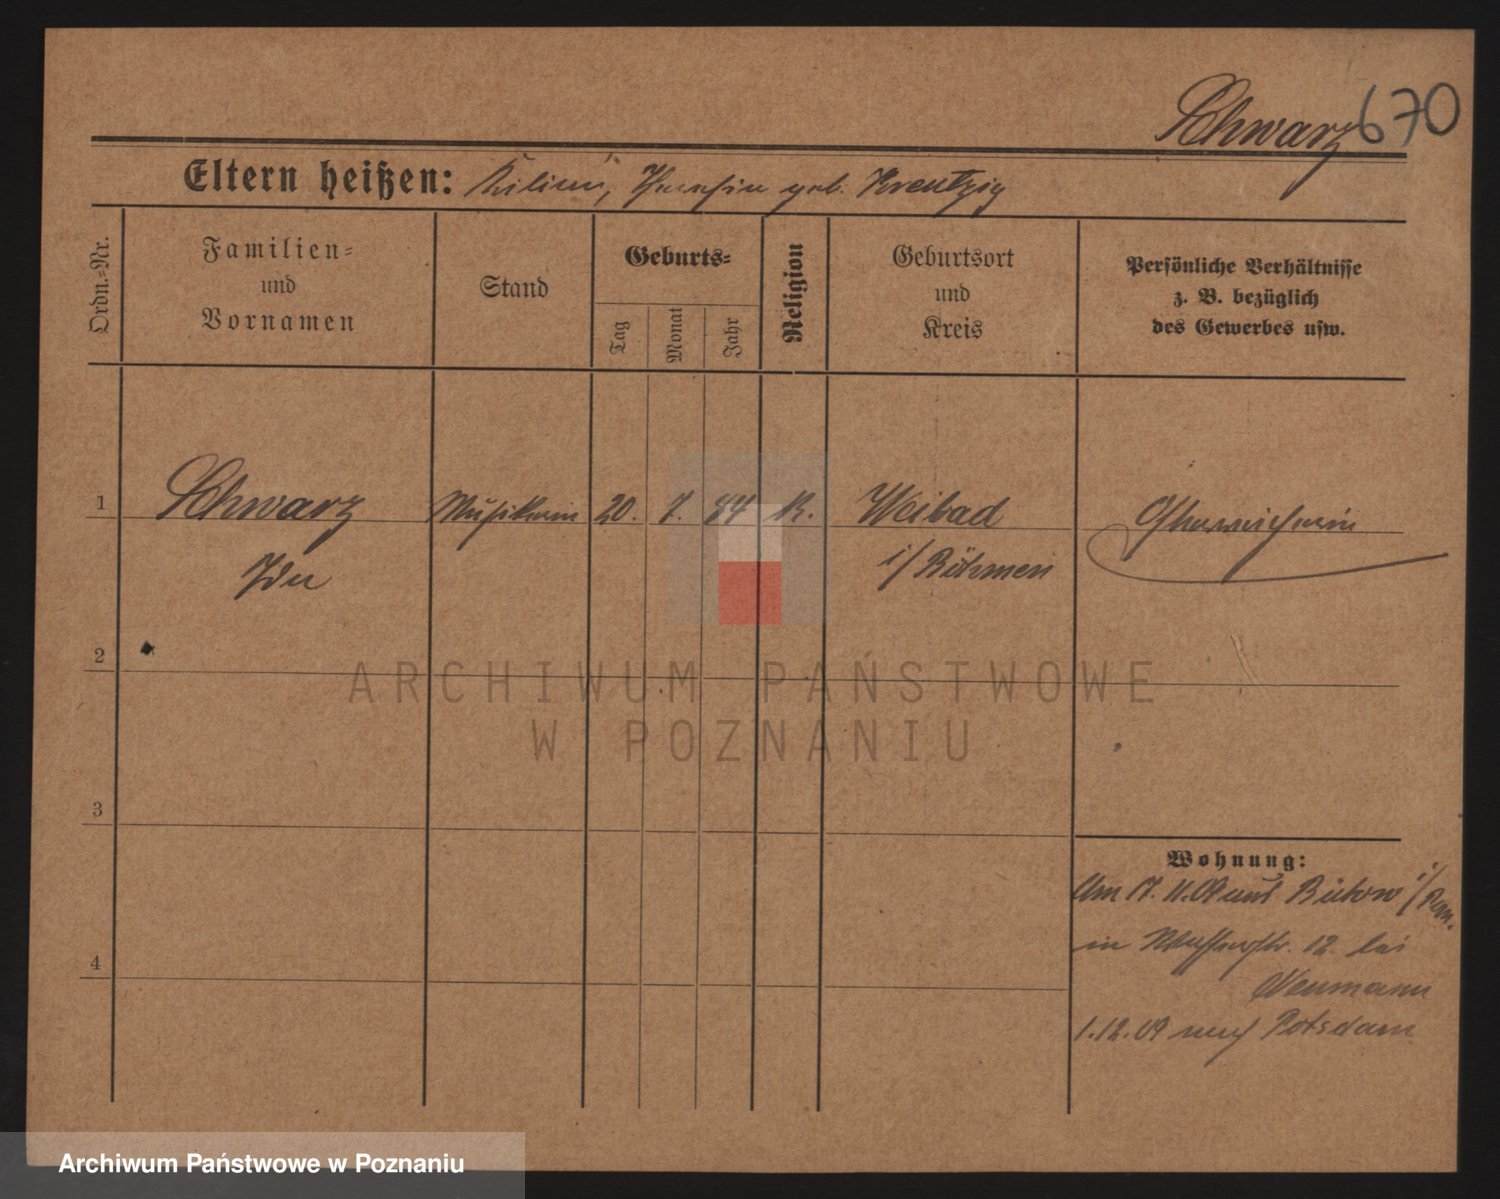 Schwarz 670
Eltern heißen: Kilian, Theresia geb. Kreutzig
Ordn.-Nr.
Familien-
und
Vornamen
Stand
Geburts-
Tag
Monat
Jahr
Religion
Geburtsort
und
Kreis
Persönliche Verhältnisse
z. B. bezüglich
des Gewerbes usw.
1 Schwarz Musikerin 20. 7. 84 K. Weibad Österreicherin
Ida i/Böhmen
2
3
4
Wohnung:
Am 17. 11. 09 aus Bütow i/Pom.
in 12. bei
Neumann
1.12.09 nach Potsdam
ARCHIWUM PAŃSTWOWE
W POZNANIU
Archiwum Państwowe w Poznaniu